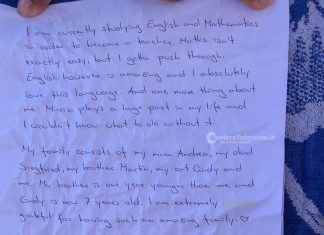 I am currently studying English and Mathematics
in order to become a teacher. Maths isn't
exactly easy, but I gotta push through.
English however is amazing and I absolutely
love this language. And one more thing about
me: Music plays a huge part in my life and
I wouldn't know what to do without it.
CorriereSalentino.it
My family consists of my mum Andrea, my dad
Siegfried, my brother Martin, my cat Candy and
me. My brother is one year younger than me and
Candy is now 7 years old. I am extremely
grateful for having such an amazing family. ♡